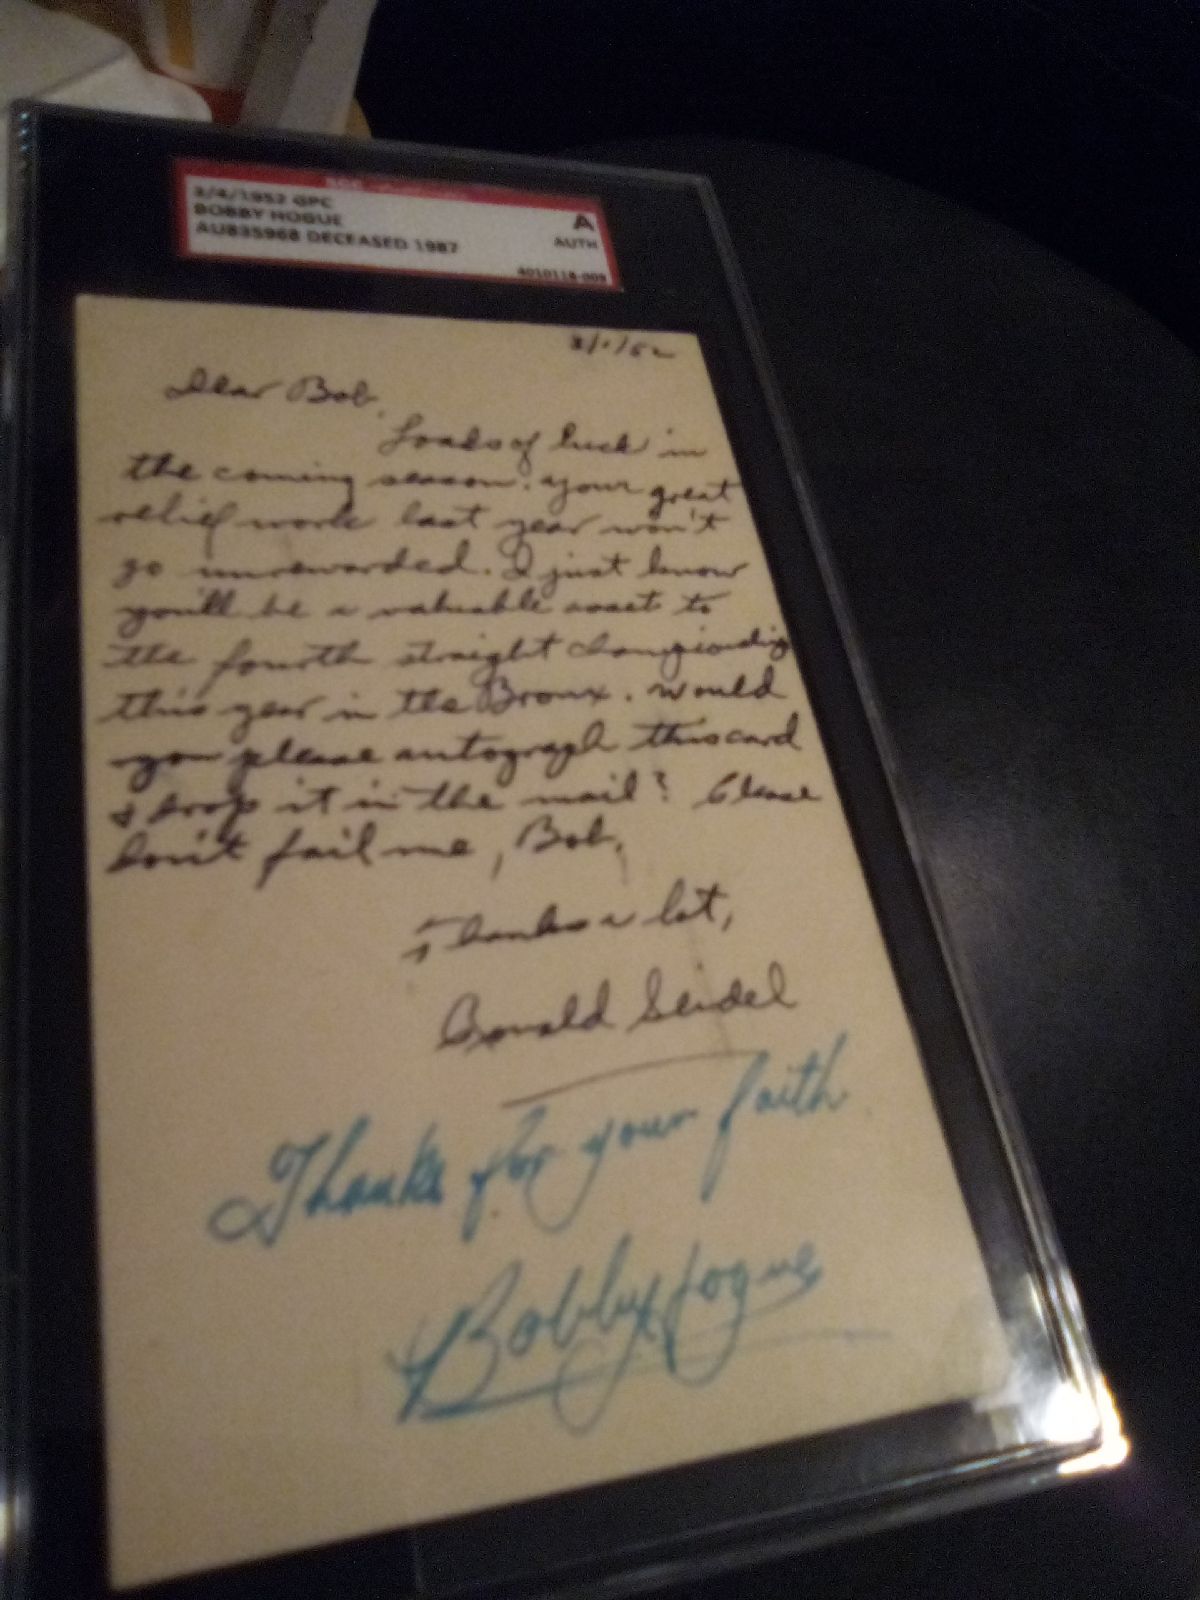 3/4/1952 GPC
BOBBY HOGUE
AU835968 DECEASED 1987
A
AUTH
4010118-009
3/1/52
Dear Bob,
Loads of luck in
the coming season. Your great
relief work last year won't
go unrewarded. I just know
you'll be a valuable asset to
the fourth straight championship
this year in the Bronx. Would
you please autograph this card
& drop it in the mail? Please
don't fail me, Bob.
Thanks a lot,
Ronald Seidel
Thanks for your faith
Bobby Hogue